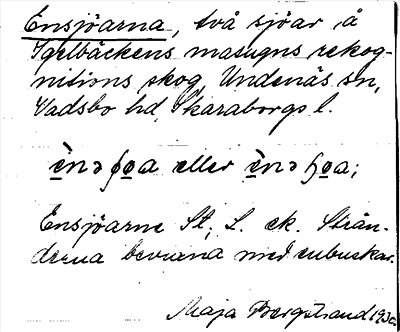 Ensjöarna, två sjöar å
Igelbäckens masugns rekog-
nitions skog, Undenäs sn,
Vadsbo hd, Skaraborgs l.
eller
Ensjöarne St., L. ek. Strän-
derna bevuxna med enbuskar.
Maja Bergstrand 1930